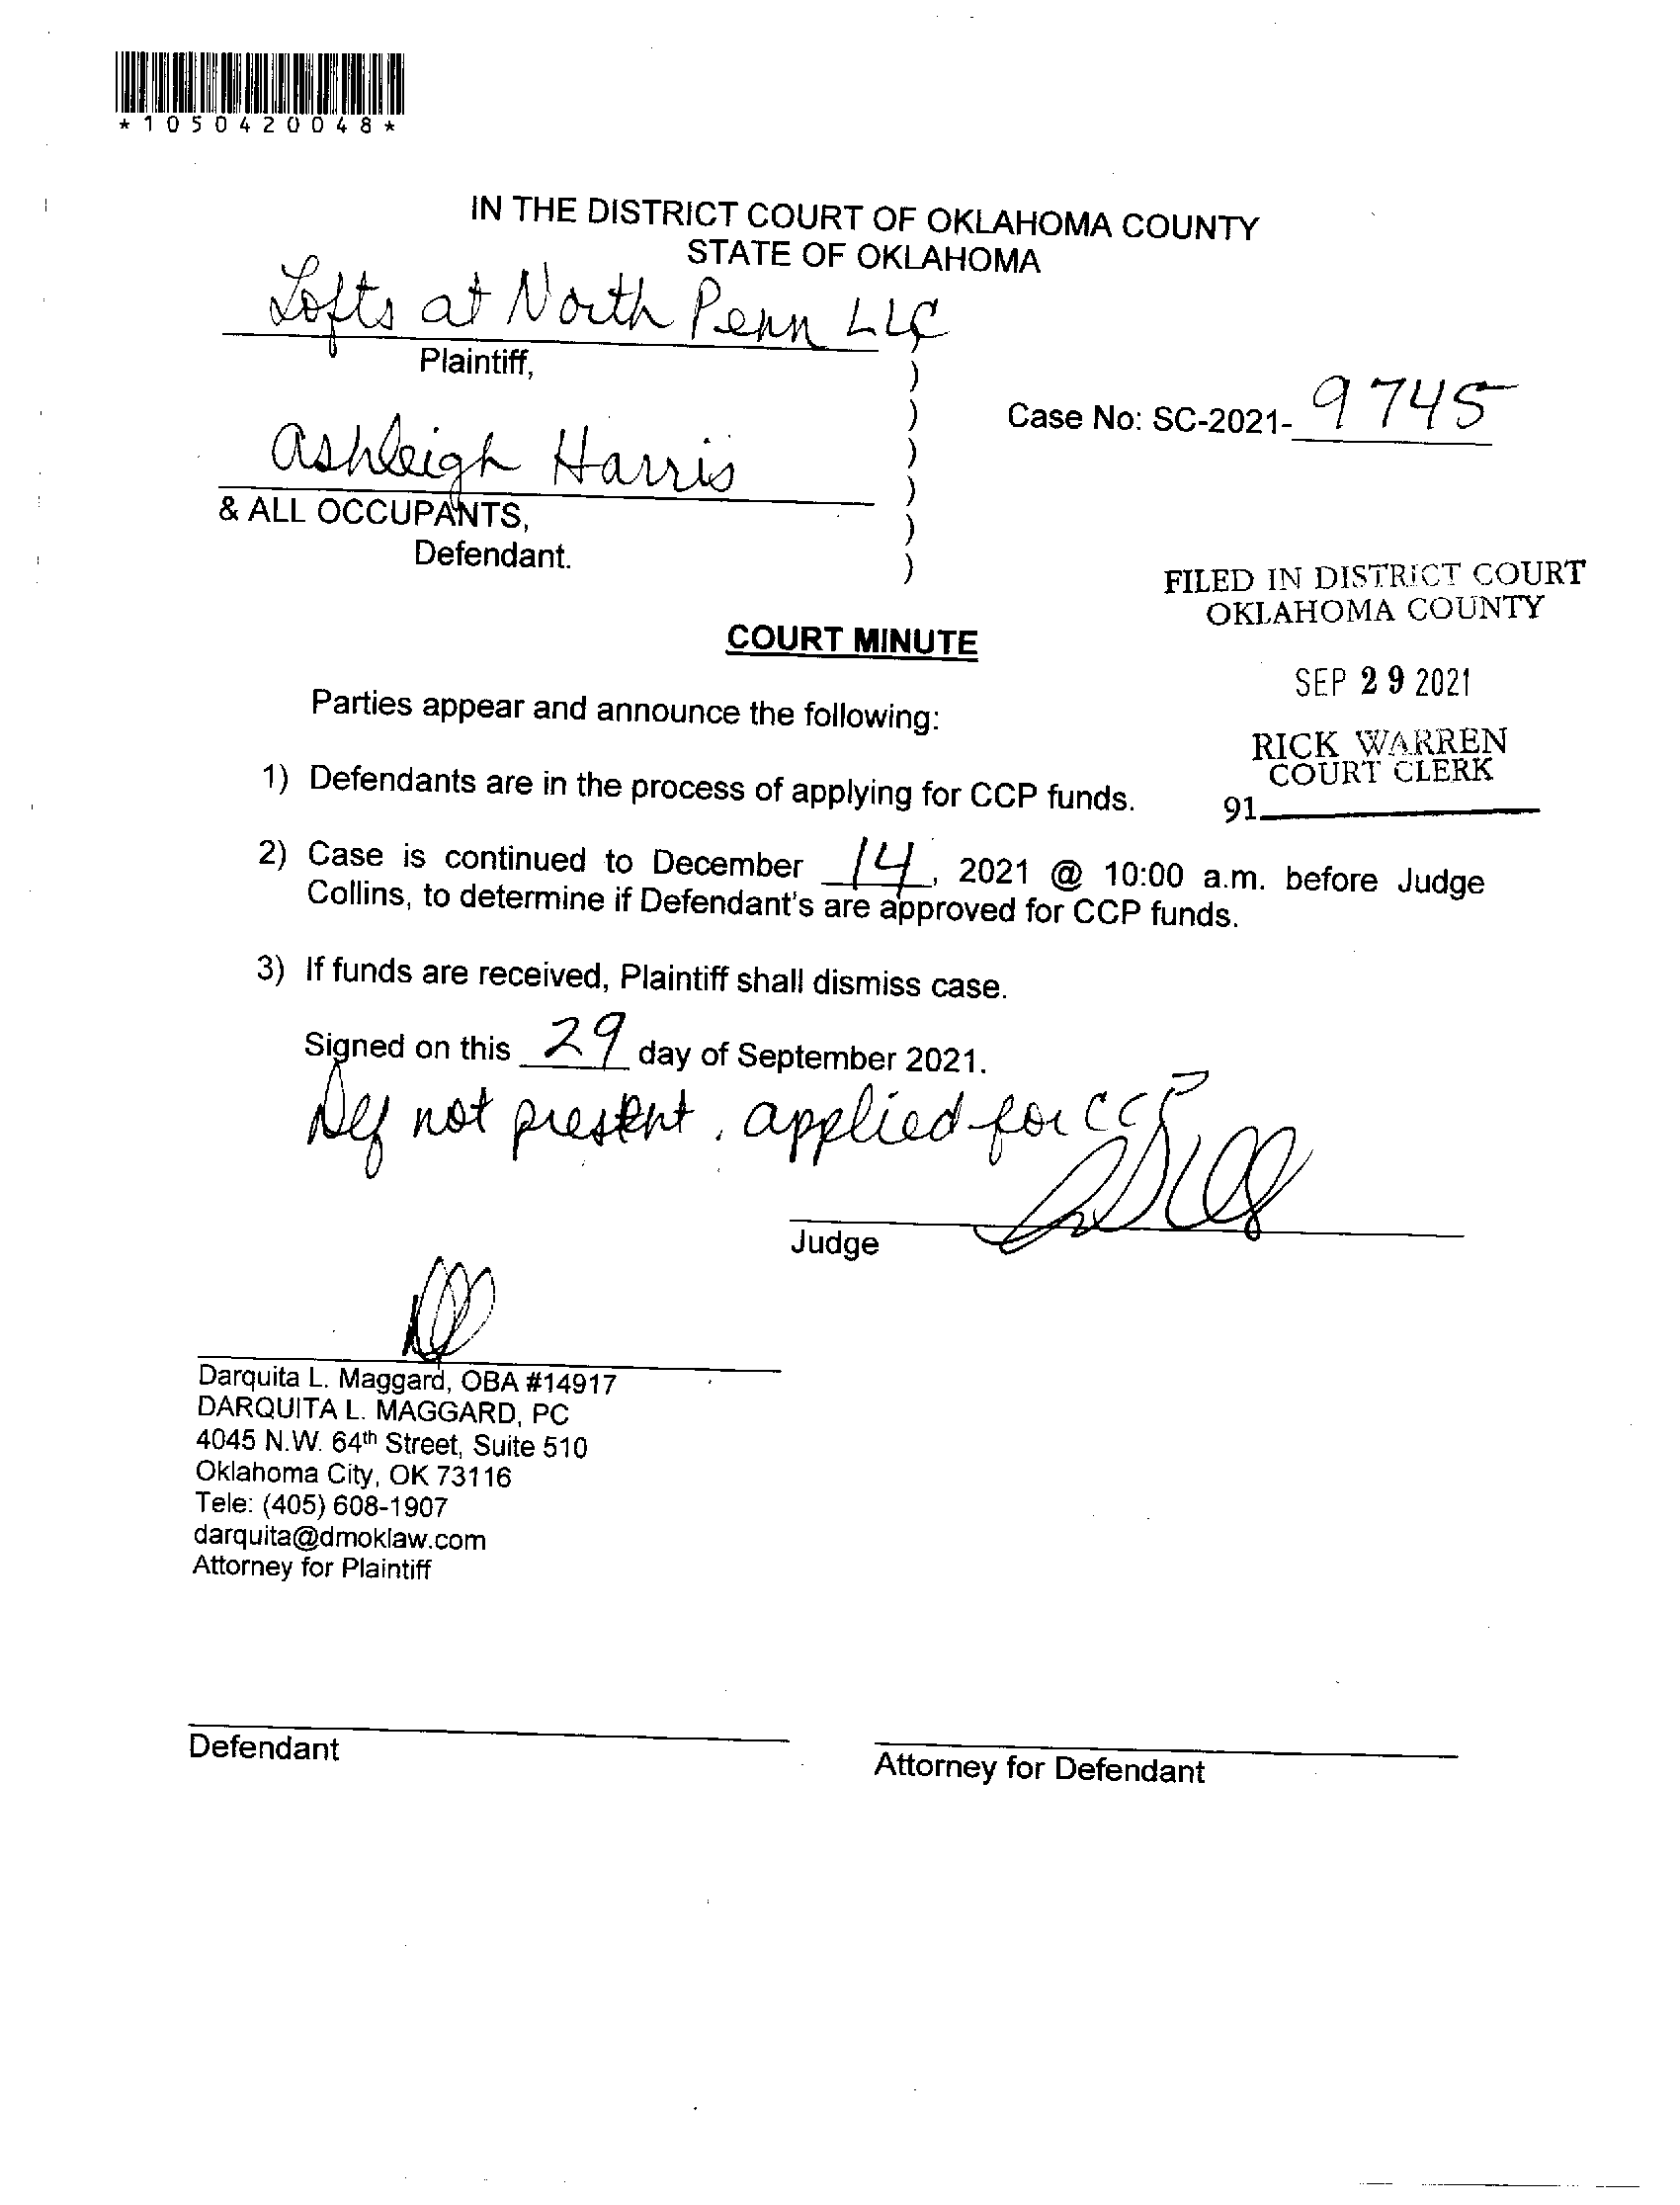 *1050420048*
IN THE DISTRICT COURT OF OKLAHOMA COUNTY
STATE OF OKLAHOMA
Lofts at North Penn LLC
Plaintiff,
)
)
Case No: SC-2021- 9745
)
Ashleigh Harris
)
& ALL OCCUPANTS,
)
Defendant.
)
FILED IN DISTRICT COURT
OKLAHOMA COUNTY
COURT MINUTE
SEP 29 2021
Parties appear and announce the following:
RICK WARREN
COURT CLERK
1) Defendants are in the process of applying for CCP funds.
91
2) Case is continued to December 14, 2021 @ 10:00 a.m. before Judge
Collins, to determine if Defendant's are approved for CCP funds.
3) If funds are received, Plaintiff shall dismiss case.
Signed on this 29 day of September 2021.
Def not present, applied for CCP
Judge
Darquita L. Maggard, OBA #14917
DARQUITA L. MAGGARD, PC
4045 N.W. 64th Street, Suite 510
Oklahoma City, OK 73116
Tele: (405) 608-1907
darquita@dmoklaw.com
Attorney for Plaintiff
Defendant
Attorney for Defendant